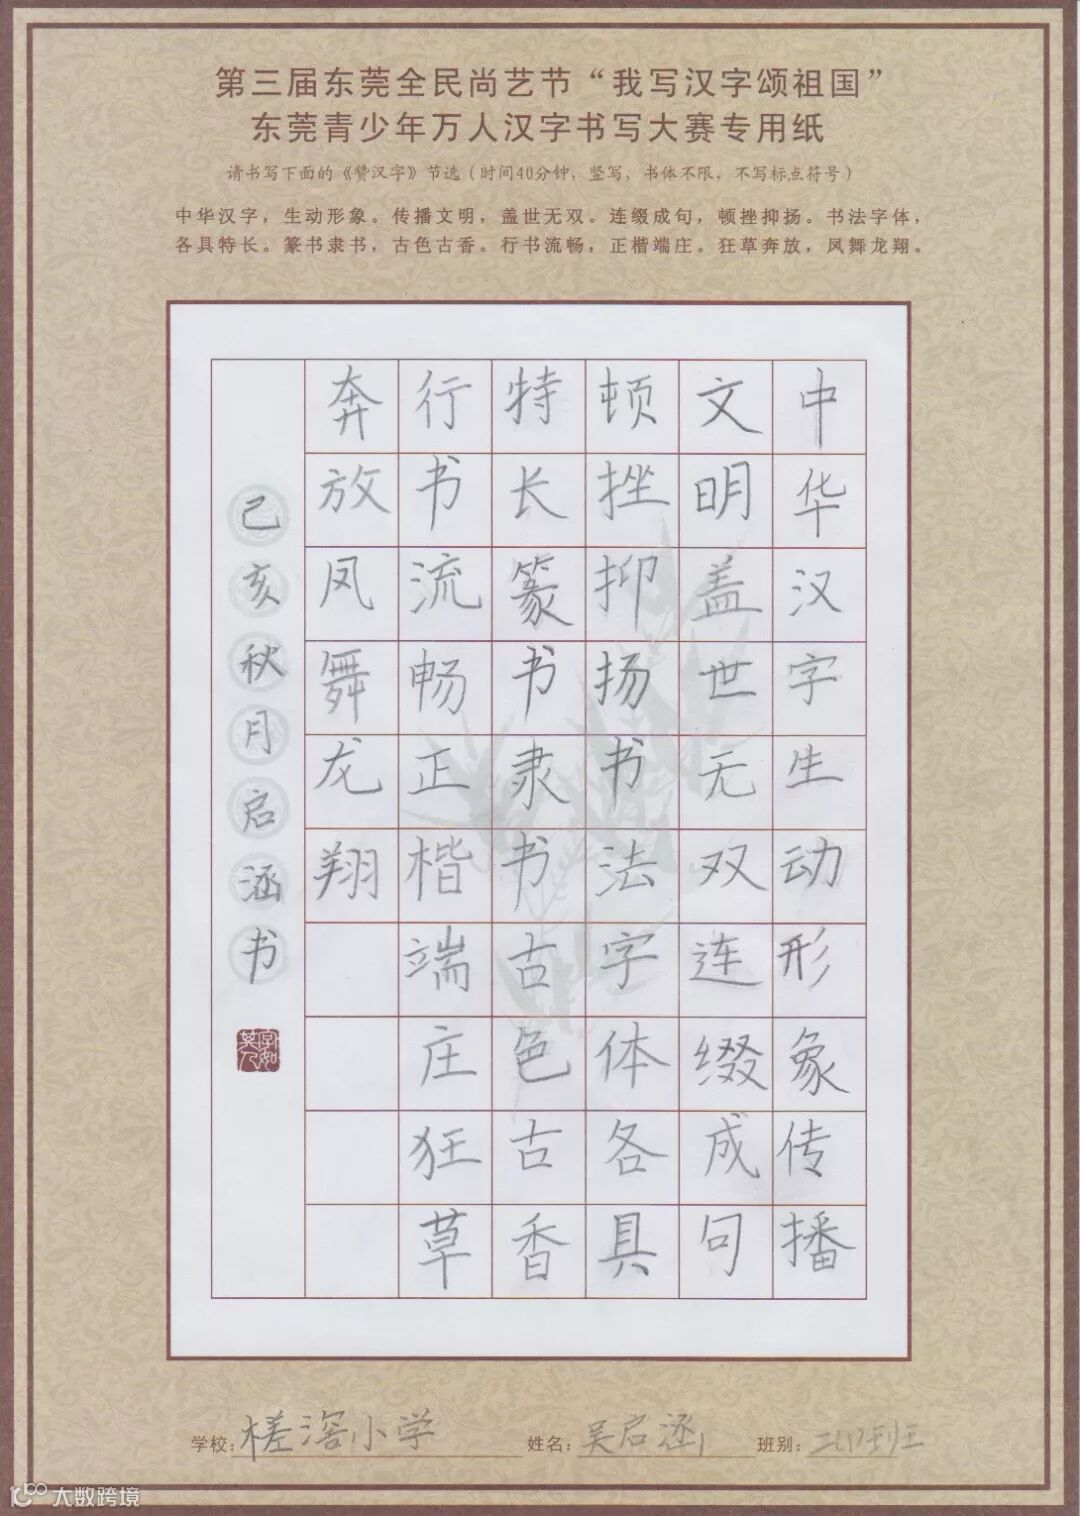 第三届东莞全民尚艺节“我写汉字颂祖国”
东莞青少年万人汉字书写大赛专用纸
请书写下面的《赞汉字》节选（时间40分钟，竖写，书体不限，不写标点符号）
中华汉字，生动形象。传播文明，盖世无双。连缀成句，顿挫抑扬。书法字体，
各具特长。篆书隶书，古色古香。行书流畅，正楷端庄。狂草奔放，凤舞龙翔。
中华汉字生动形象传播
文明盖世无双连缀成句
顿挫抑扬书法字体各具
特长篆书隶书古色古香
行书流畅正楷端庄狂草
奔放凤舞龙翔
己亥秋月启涵书
学校：槎滘小学 姓名：吴启涵 班别：
大数跨境